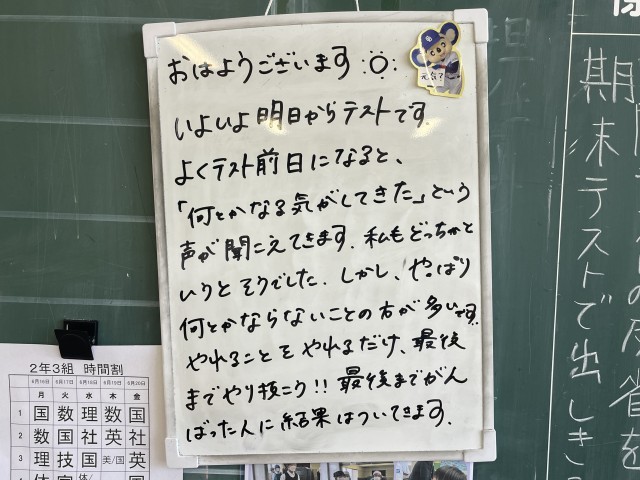 おはようございます
元気?
いよいよ明日からテストです。
よくテスト前日になると、
「何とかなる気がしてきた」という
声が聞こえてきます。私もどっちかと
いうとそうでした。しかし、やっぱり
何とかならないことの方が多いです。
やれることをやれるだけ、最後
までやり抜こう!!最後までがん
ばった人に結果はついてきます。
2年3組 時間割
6月16日 6月17日 6月18日 6月19日 6月20日
月 火 水 木 金
1 国 数 理 数 国
2 数 国 社 英 社
3 理 技 国 美/国 英
期末テストで出しき
反省を